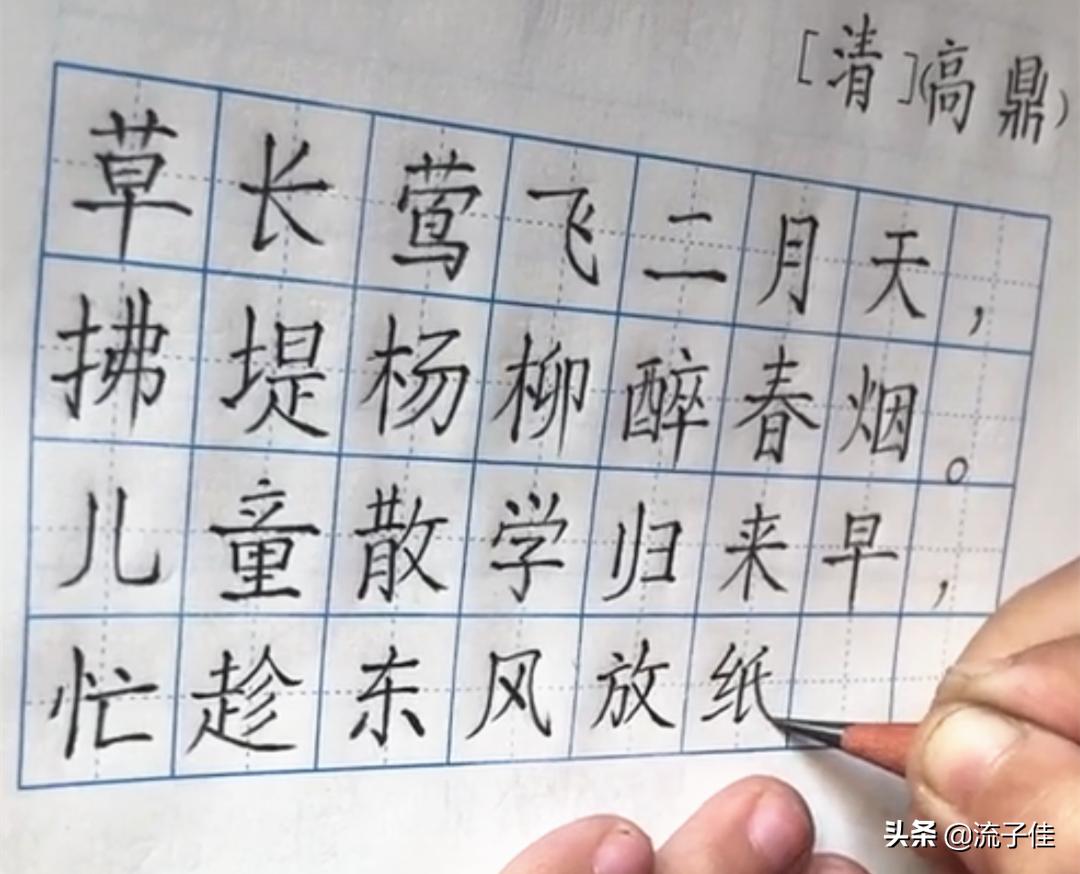 [清](高鼎)
草长莺飞二月天，
拂堤杨柳醉春烟。
儿童散学归来早，
忙趁东风放纸
头条 @流子佳